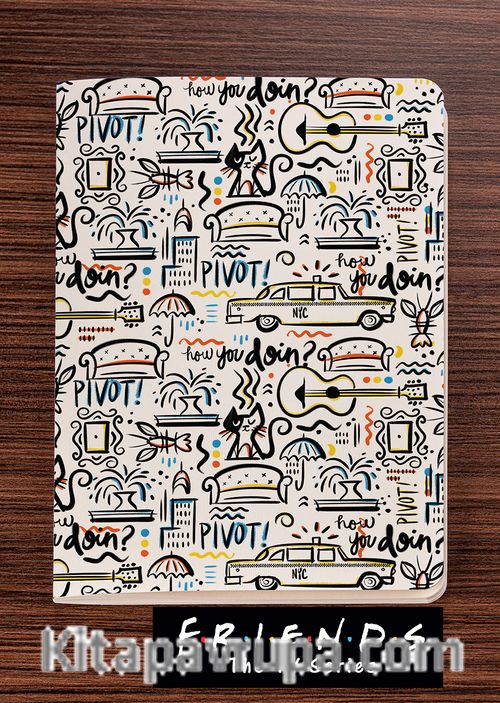 how you doin?
PIVOT!
PIVOT!
PIVOT!
how you doin?
doin?
NYC
how you doin?
PIVOT!
PIVOT!
PIVOT!
how you doin?
doin?
NYC
F·R·I·E·N·D·S
The TV Series
Kitapavrupa.com